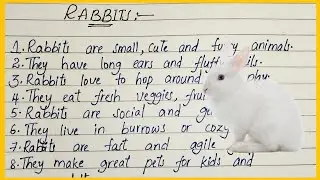 RABBITS:-
1. Rabbits are small, cute and furry animals.
2. They have long ears and fluffy
3. Rabbits love to hop around
4. They eat fresh veggies,
5. Rabbits are social and
6. They live in burrows or cozy
7. Rabbits are fast and agile
8. They make great pets for kids and